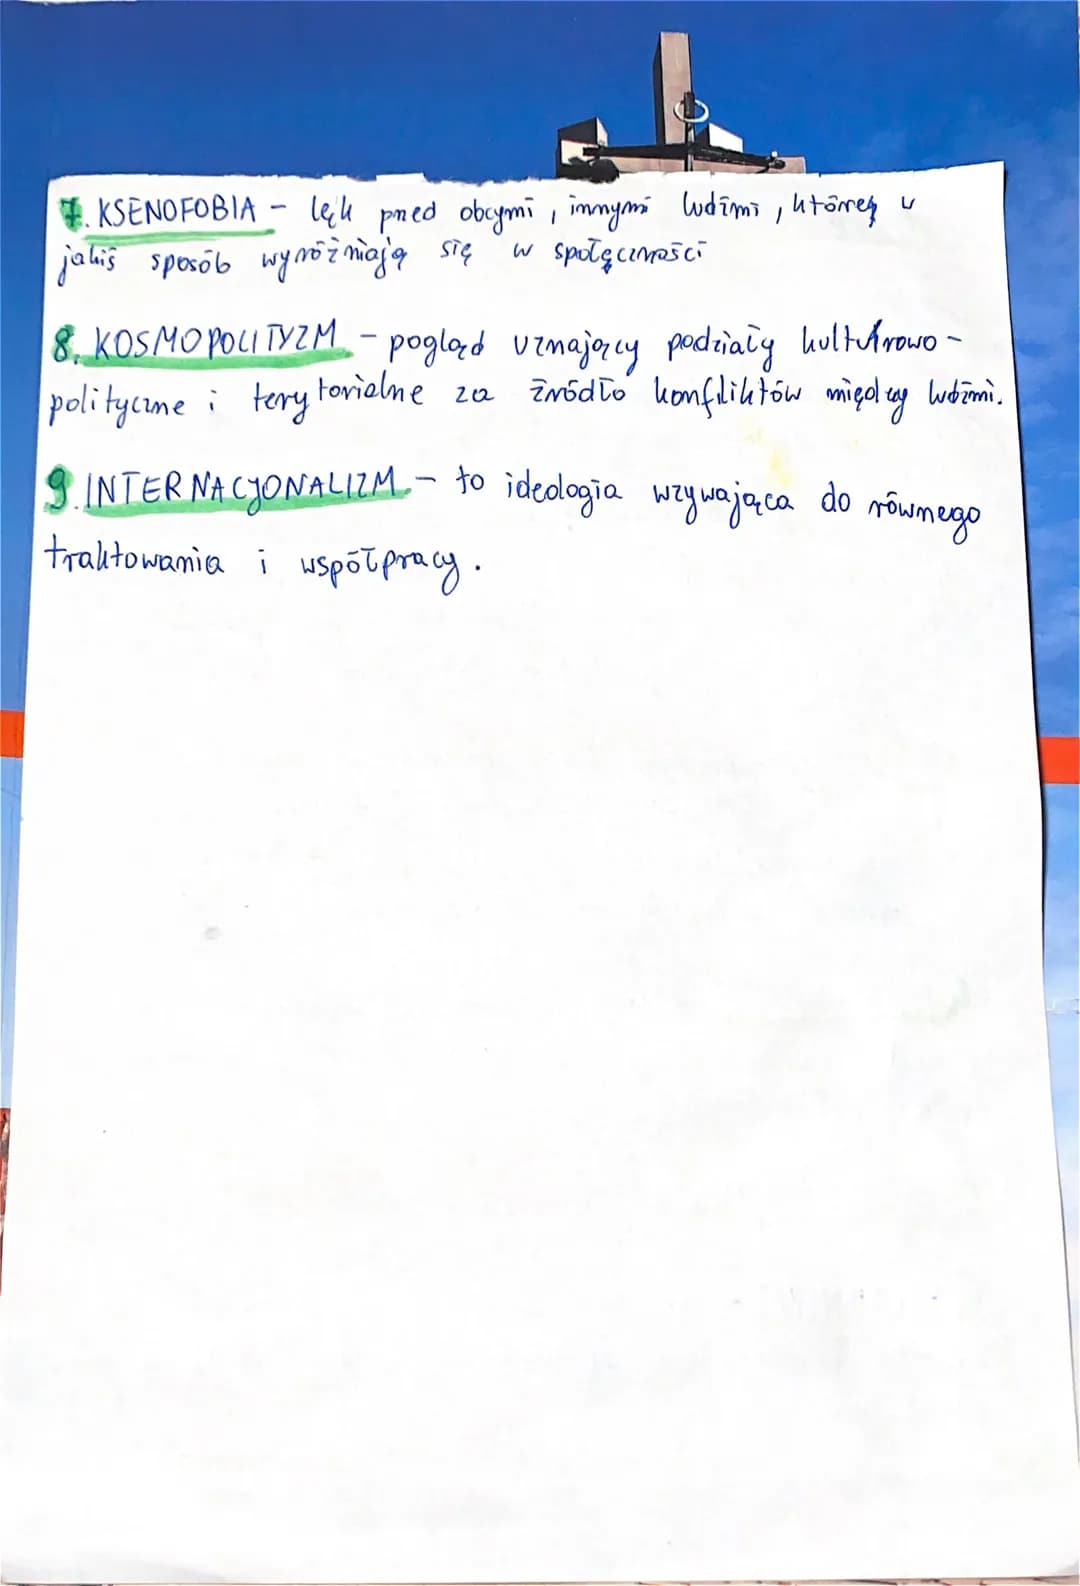 7. KSENOFOBIA - lęk przed obcymi, innymi ludźmi, którzy w
jakiś sposób wyróżniają się w społęczności
8. KOSMOPOLITYZM - pogląd uznający podziały kulturowo -
polityczne i terytorialne za źródło konfliktów między ludźmi.
9. INTERNACJONALIZM - to ideologia wzywająca do równego
traktowania i współpracy.